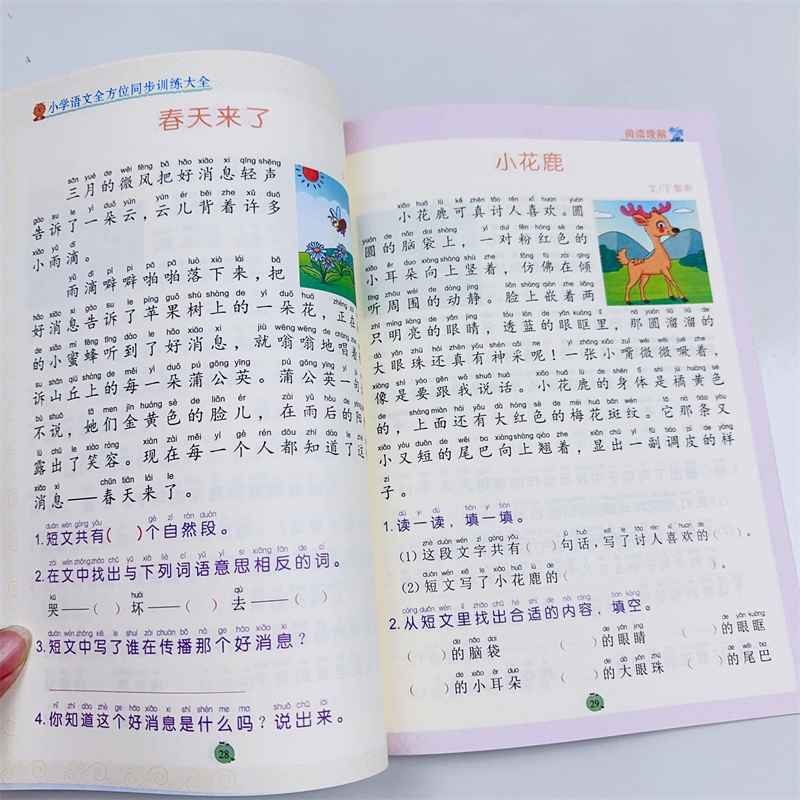 小学语文全方位同步训练大全
春天来了
sān yuè de wēi fēng bǎ hǎo xiāo xi qīng shēng
三月的微风把好消息轻声
gào su le yì duǒ yún yún ér bēi zhe xǔ duō
告诉了一朵云，云儿背着许多
xiǎo yǔ dī
小雨滴。
yǔ dī pī pī pā pā luò xià lái bǎ
雨滴噼噼啪啪落下来，把
hǎo xiāo xi gào su le píng guǒ shù shàng de yì duǒ huā zhèng zài
好消息告诉了苹果树上的一朵花，正在
de xiǎo mì fēng tīng dào le hǎo xiāo xi jiù wēng wēng de chàng zhe
的小蜜蜂听到了好消息，就嗡嗡地唱着
su shān qiū shàng de měi yì duǒ pú gōng yīng pú gōng yīng yí jù
诉山丘上的每一朵蒲公英。蒲公英一句
bù shuō tā men jīn huáng sè de liǎn ér zài yǔ hòu de yáng
不说，她们金黄色的脸儿，在雨后的阳
lù chū le xiào róng xiàn zài měi yí gè rén dōu zhī dào le zhè
露出了笑容。现在每一个人都知道了这
xiāo xi chūn tiān lái le
消息——春天来了。
duǎn wén gòng yǒu gè zì rán duàn
1.短文共有( )个自然段。
zài wén zhōng zhǎo chū yǔ xià liè cí yǔ yì si xiāng fǎn de cí
2.在文中找出与下列词语意思相反的词。
kū huài qù
哭——( ) 坏——( ) 去——( )
duǎn wén zhōng xiě le shuí zài chuán bō nà ge hǎo xiāo xi
3.短文中写了谁在传播那个好消息？
nǐ zhī dào zhè ge hǎo xiāo xi shì shén me ma shuō chū lái
4.你知道这个好消息是什么吗？说出来。
28
阅读理解
小花鹿
文/丁黎昕
xiǎo huā lù kě zhēn tǎo rén xǐ huan yuán
小花鹿可真讨人喜欢。圆
yuán de nǎo dai shàng yí duì fěn hóng sè de
圆的脑袋上，一对粉红色的
xiǎo ěr duo xiàng shàng shù zhe fǎng fú zài qīng
小耳朵向上竖着，仿佛在倾
tīng zhōu wéi de dòng jìng liǎn shàng qiàn zhe liǎng
听周围的动静。脸上嵌着两
zhī míng liàng de yǎn jing tòu lán de yǎn kuàng lǐ nà yuán liū liū de
只明亮的眼睛，透蓝的眼眶里，那圆溜溜的
dà yǎn zhū hái zhēn yǒu shén cǎi ne yì zhāng xiǎo zuǐ wēi wēi juē zhe
大眼珠还真有神采呢！一张小嘴微微噘着，
xiàng shì yào gēn wǒ shuō huà xiǎo huā lù de shēn tǐ shì jú huáng sè
像是要跟我说话。小花鹿的身体是橘黄色
de shàng miàn hái yǒu dà hóng sè de méi huā bān wén tā nà tiáo yòu
的，上面还有大红色的梅花斑纹。它那条又
xiǎo yòu duǎn de wěi ba xiàng shàng qiào zhe xiǎn chū yí fù tiáo pí de yàng
小又短的尾巴向上翘着，显出一副调皮的样
zi
子。
dú yi dú tián yi tián
1.读一读，填一填。
zhè duàn wén zì gòng yǒu jù huà xiě le tǎo rén xǐ huan de
(1)这段文字共有( )句话，写了讨人喜欢的(
duǎn wén xiě le xiǎo huā lù de
(2)短文写了小花鹿的( )。
cóng duǎn wén lǐ zhǎo chū hé shì de nèi róng tián kòng
2.从短文里找出合适的内容，填空。
de nǎo dai de yǎn jing de yǎn kuàng
( )的脑袋 ( )的眼睛 ( )的眼眶
de xiǎo ěr duo de dà yǎn zhū de wěi ba
( )的小耳朵 ( )的大眼珠 ( )的尾巴
29